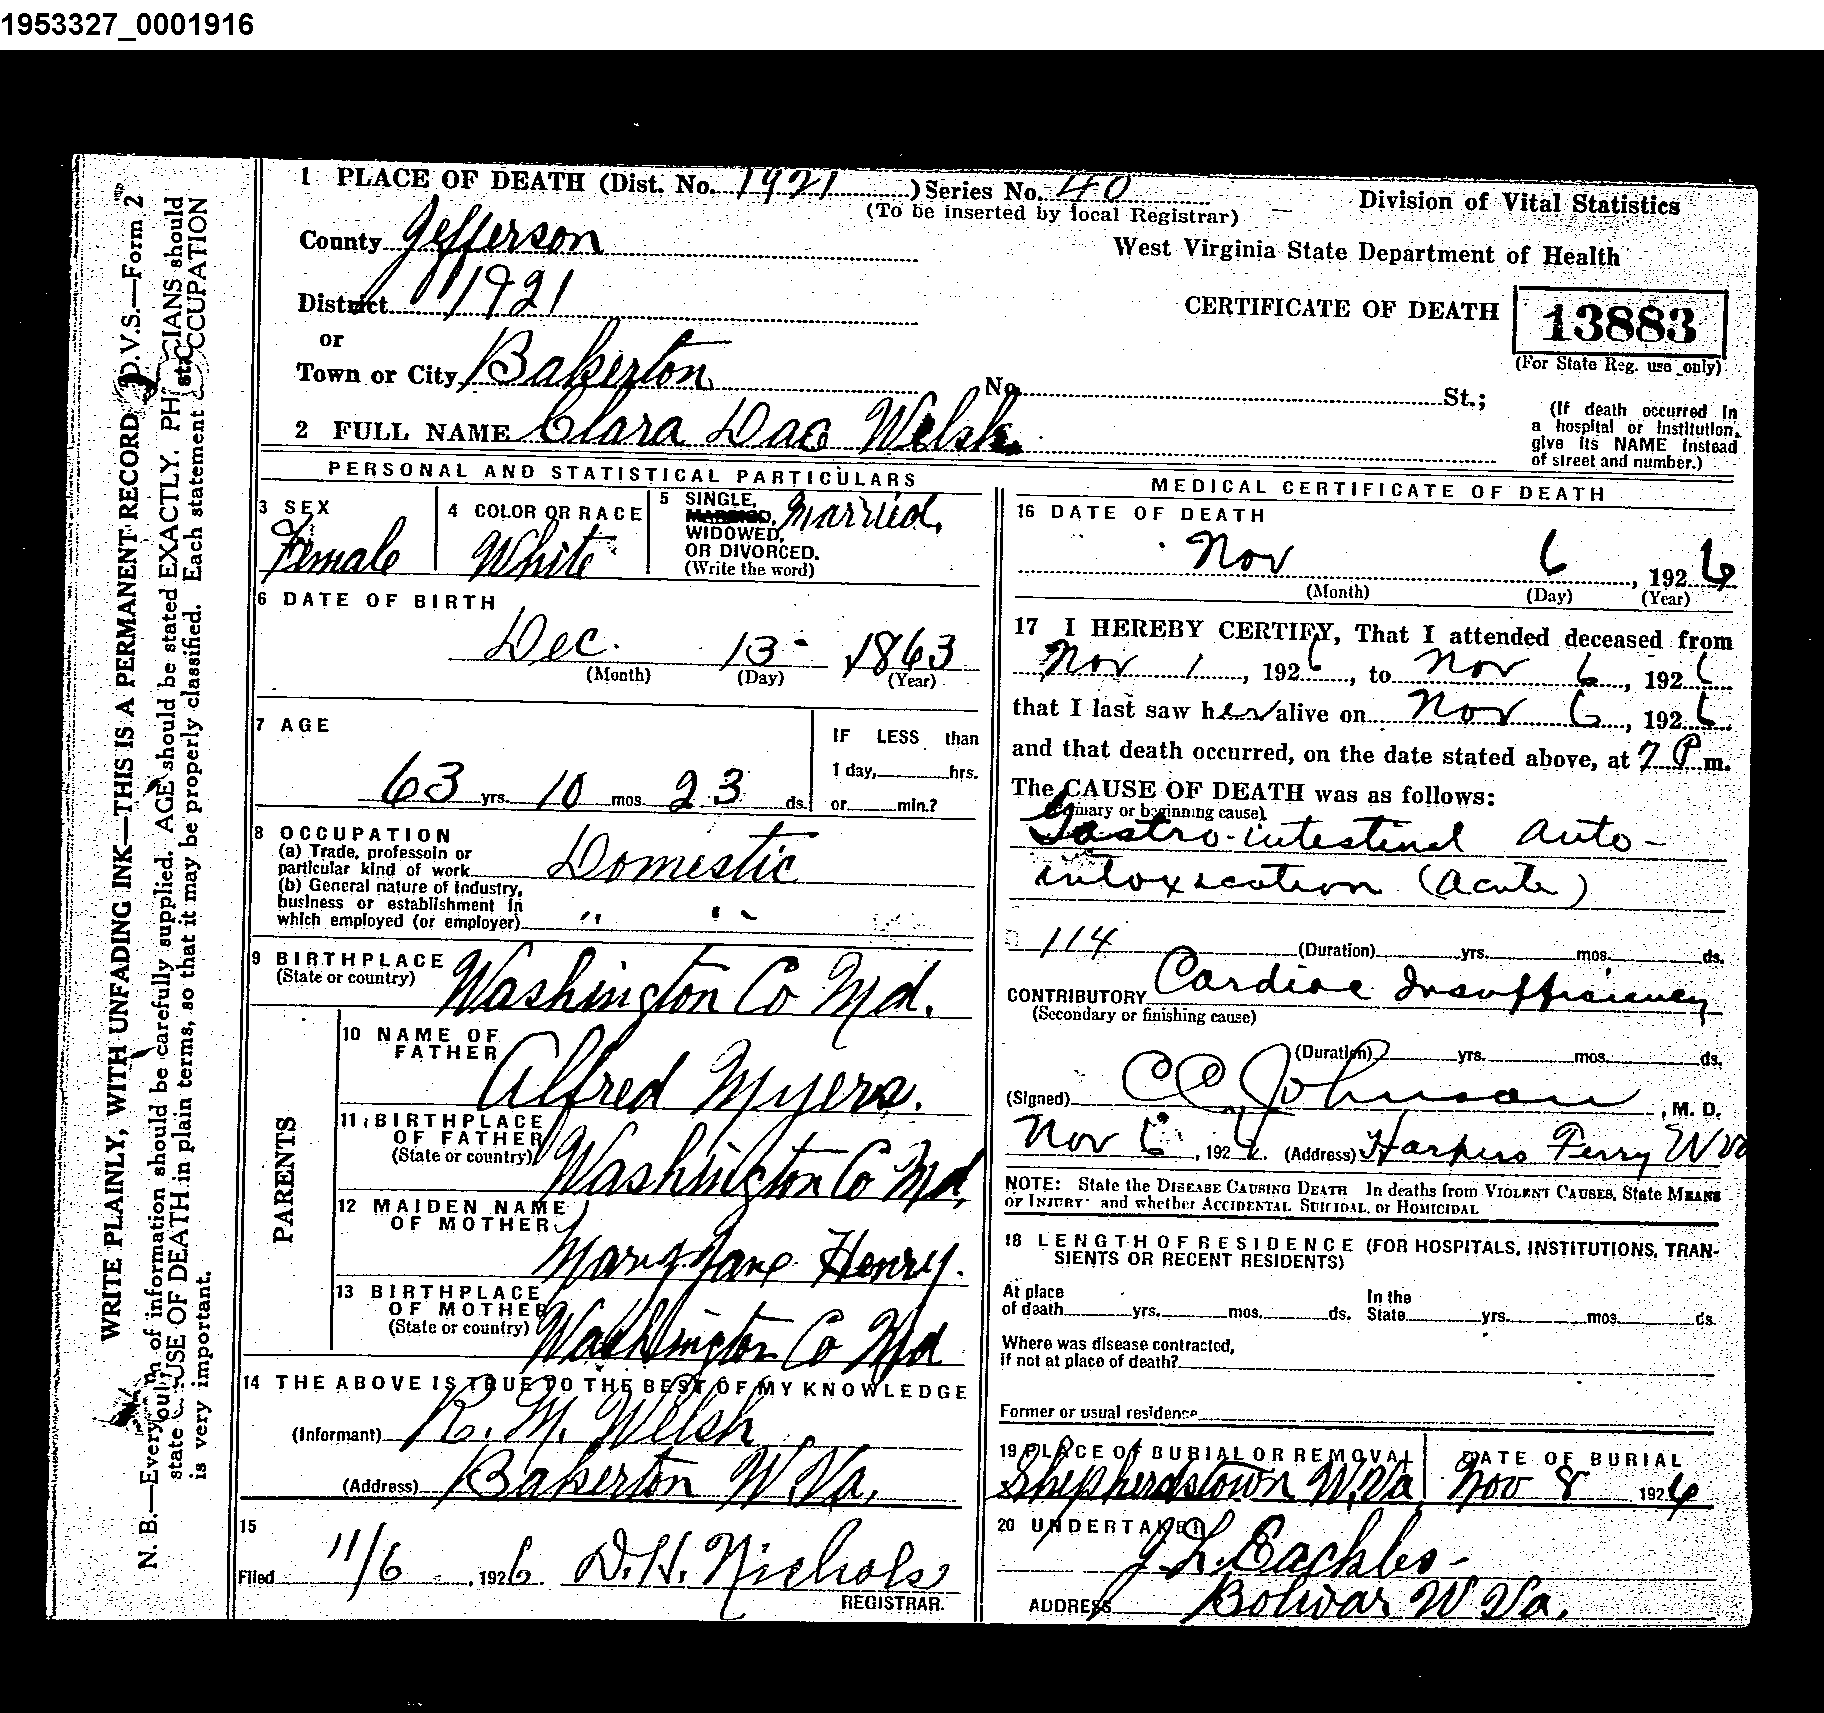 1953327_0001916
WRITE PLAINLY, WITH UNFADING INK—THIS IS A PERMANENT RECORD D.V.S.—Form 2
N. B.—Every item of information should be carefully supplied. AGE should be stated EXACTLY. PHYSICIANS should
state CAUSE OF DEATH in plain terms, so that it may be properly classified. Each statement OCCUPATION
is very important.
1 PLACE OF DEATH (Dist. No. 1921 ) Series No. 40
(To be inserted by local Registrar)
Division of Vital Statistics
County Jefferson
West Virginia State Department of Health
District 1921
CERTIFICATE OF DEATH 13883
(For State Reg. use only)
or
Town or City Bakerton No. St.;
(If death occurred in
a hospital or institution,
give its NAME instead
of street and number.)
2 FULL NAME Clara Welsh
PERSONAL AND STATISTICAL PARTICULARS
3 SEX
Female
4 COLOR OR RACE
White
5 SINGLE,
MARRIED,
WIDOWED,
OR DIVORCED.
(Write the word)
Married.
6 DATE OF BIRTH
Dec. 13 1863
(Month) (Day) (Year)
7 AGE
63 yrs. 10 mos. 23 ds.
IF LESS than
1 day, hrs.
or min.?
8 OCCUPATION
(a) Trade, professoin or
particular kind of work Domestic
(b) General nature of industry,
business or establishment in
which employed (or employer) " "
9 BIRTHPLACE
(State or country) Washington Co Md.
PARENTS
10 NAME OF
FATHER Alfred Myers.
11 BIRTHPLACE
OF FATHER
(State or country) Washington Co Md,
12 MAIDEN NAME
OF MOTHER
Mary Jane Henry.
13 BIRTHPLACE
OF MOTHER
(State or country) Washington Co Md
14 THE ABOVE IS TRUE TO THE BEST OF MY KNOWLEDGE
(Informant) R. M. Welsh
(Address) Bakerton W.Va.
15
Filed 11/6, 1926 D. H. Nichols
REGISTRAR.
MEDICAL CERTIFICATE OF DEATH
16 DATE OF DEATH
Nov 6, 1926
(Month) (Day) (Year)
17 I HEREBY CERTIFY, That I attended deceased from
Nov 1, 1926, to Nov 6, 1926
that I last saw her alive on Nov 6, 1926
and that death occurred, on the date stated above, at 7 P m.
The CAUSE OF DEATH was as follows:
(Primary or beginning cause)
Gastro-intestinal auto-
intoxication (acute)
114 (Duration) yrs. mos. ds.
CONTRIBUTORY Cardiac Insufficiency
(Secondary or finishing cause)
(Duration) yrs. mos. ds.
(Signed) CC Johnson, M. D.
Nov 6, 1926. (Address) Harpers Ferry W Va
NOTE: State the DISEASE CAUSING DEATH In deaths from VIOLENT CAUSES, State MEANS
OF INJURY and whether ACCIDENTAL SUICIDAL, or HOMICIDAL
18 LENGTH OF RESIDENCE (FOR HOSPITALS, INSTITUTIONS, TRAN-
SIENTS OR RECENT RESIDENTS)
At place
of death yrs. mos. ds. In the
State yrs. mos. ds.
Where was disease contracted,
if not at place of death?
Former or usual residence
19 PLACE OF BURIAL OR REMOVAL
Shepherdstown W.Va.
DATE OF BURIAL
Nov 8 1926
20 UNDERTAKER
J. L. Eackles
ADDRESS Bolivar W Va.